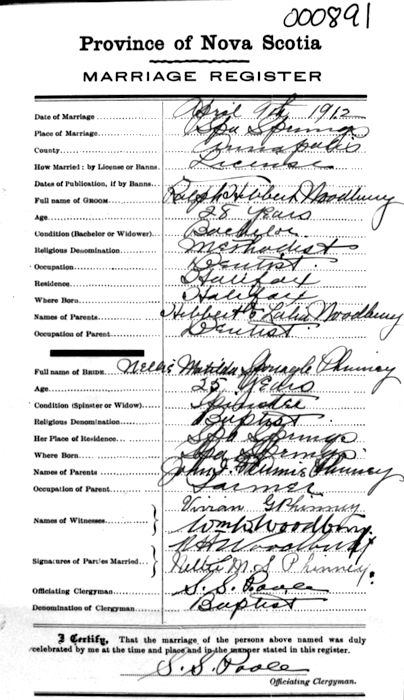 000891
Province of Nova Scotia
MARRIAGE REGISTER
Date of Marriage April 9th, 1912
Place of Marriage Spa Springs
County Annapolis
How Married: by License or Banns License
Dates of Publication, if by Banns
Full name of GROOM Ralph Hibbert Woodbury
Age 28 Years
Condition (Bachelor or Widower) Bachelor
Religious Denomination Methodist
Occupation Dentist
Residence Halifax
Where Born Halifax
Names of Parents Hibbert & Woodbury
Occupation of Parent Dentist
Full name of BRIDE Nellie Matilda Sprague Phinney
Age 25 Years
Condition (Spinster or Widow) Spinster
Religious Denomination Baptist
Her Place of Residence Spa Springs
Where Born Spa Springs
Names of Parents John & Phinney
Occupation of Parent Farmer
Names of Witnesses Vivian G Phinney
Wm W Woodbury
Signatures of Parties Married R H Woodbury
Nellie M. S Phinney
Officiating Clergyman S. S. Poole
Denomination of Clergyman Baptist
I Certify, That the marriage of the persons above named was duly
celebrated by me at the time and place and in the manner stated in this register.
S. S. Poole
Officiating Clergyman.